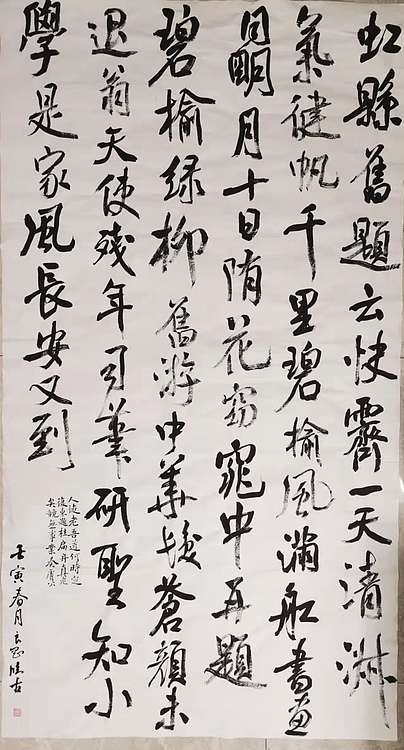 虹縣舊題云快霽一天清淑
氣健帆千里碧榆風滿舡書畫
同明月十日隨花窈窕中再題
碧榆綠柳舊游中華髮蒼顏未
退翁天使殘年司筆研聖知小
學是家風長安又到
人徒老吾道何時定
復東題柱扁舟真老
矣竟無事業奏膚公
壬寅春月